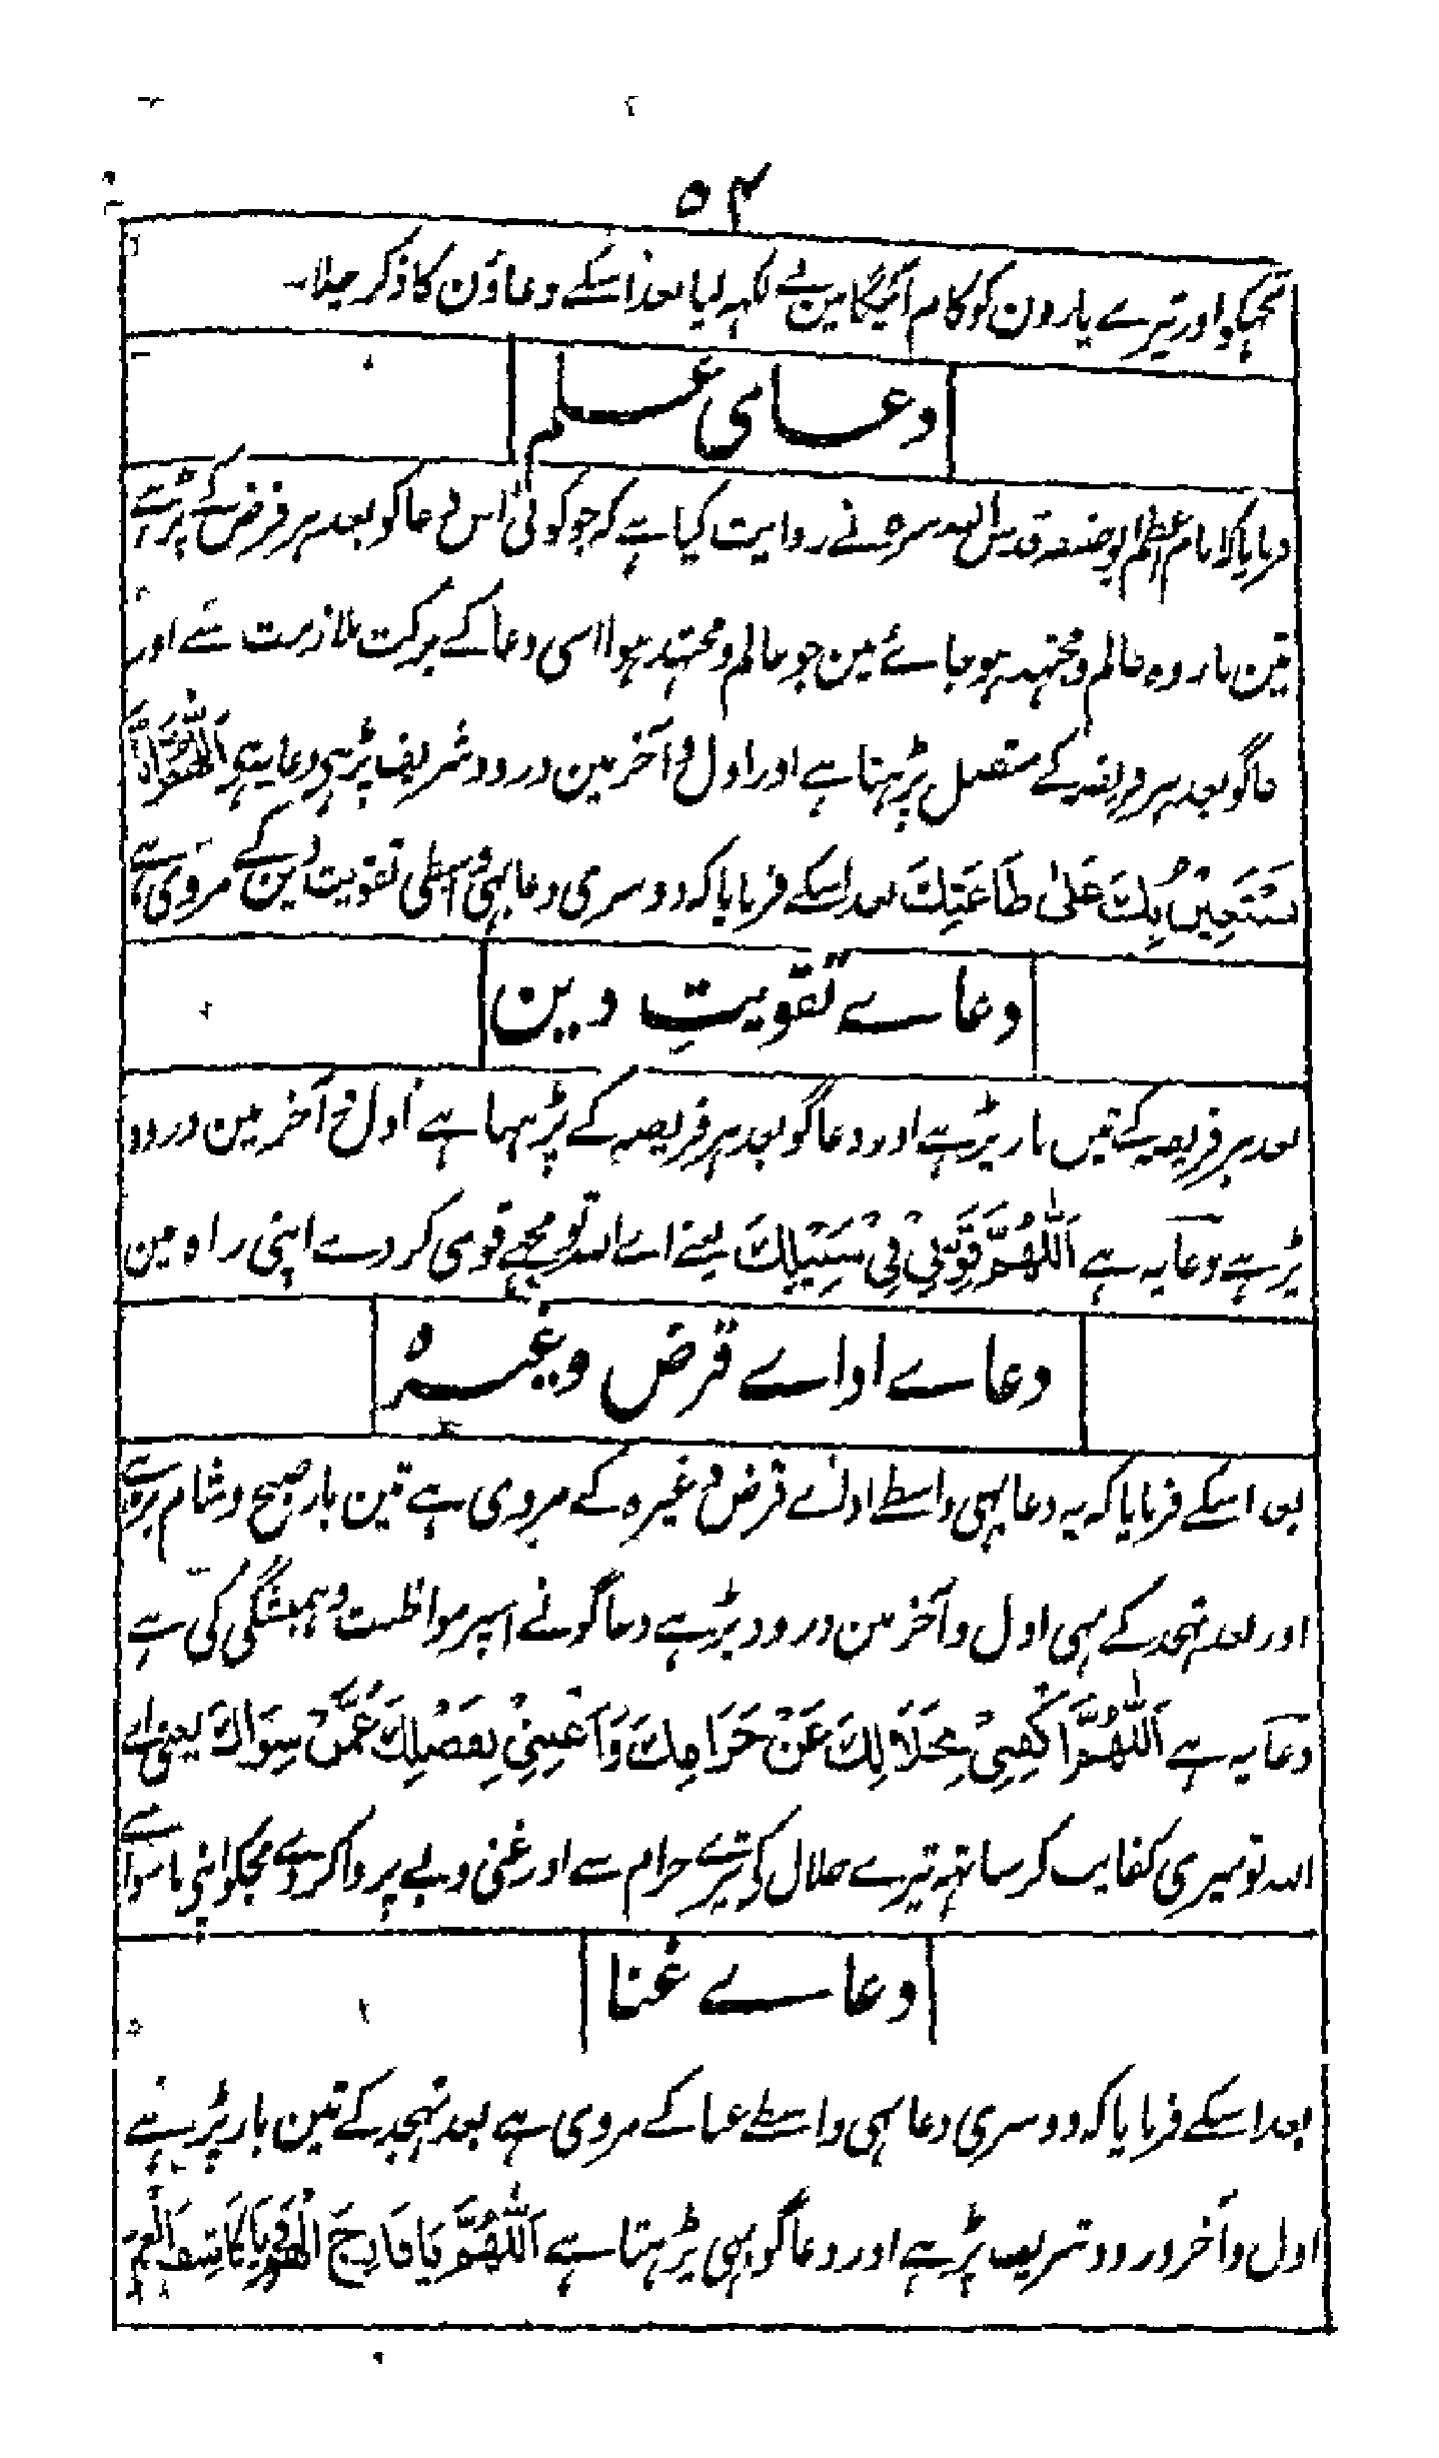 ۵۴
تجہکو اور تیرے یارون کو کام آئیگا مین نے لکہہ لیا بعد اسکے دعاؤن کا ذکر چلا۔
دعای علم
فرمایا کہ امام اعظم ابو حنیفہ قدس اللہ سرہ نے روایت کیا ہے کہ جو کوئی اس دعا کو بعد ہر فرض کے پڑہے
تین بار وہ عالم و مجتہد ہو جاے مین جو عالم و مجتہد ہوا اسی دعا کے برکت ملازمت سے اور
دعا گو بعد ہر فریضہ کے متصل پڑہتا ہے اور اول و آخر مین درود شریف پڑہے دعا یہ ہے اَللّٰهُمَّ اِنَّا
نَسْتَعِيْنُ بِكَ عَلٰى طَاعَتِكَ بعد اسکے فرمایا کہ دوسری دعا بہی واسطی تقویت دین کے مروی ہے
دعاے تقویتِ دین
بعد ہر فریضہ کے تین بار پڑہے اور دعا گو بعد ہر فریضہ کے پڑہتا ہے اول و آخر مین درود
پڑہے دعا یہ ہے اَللّٰهُمَّ قَوِّنِيْ فِيْ سَبِيْلِكَ یعنے اے اللہ تو مجہے قوی کر دے اپنی راہ مین
دعاے اداے قرض وغیرہ
بعد اسکے فرمایا کہ یہ دعا بہی واسطے اداے قرض وغیرہ کے مروی ہے تین بار صبح و شام پڑہے
اور بعد تہجد کے بہی اول و آخر مین درود پڑہے دعا گو نے اسپر مواظبت و ہمیشگی کی ہے
دعا یہ ہے اَللّٰهُمَّ اكْفِنِيْ بِحَلَالِكَ عَنْ حَرَامِكَ وَاَغْنِنِيْ بِفَضْلِكَ عَمَّنْ سِوَاكَ یعنی اے
اللہ تو میری کفایت کر ساتہہ تیرے حلال کی تیرے حرام سے اور غنی و بے پروا کردے مجکو اپنی ماسوا سے
دعاے غنا
بعد اسکے فرمایا کہ دوسری دعا بہی واسطے غنا کے مروی ہے بعد تہجد کے تین بار پڑہنے
اول و آخر درود شریف پڑہے اور دعا گو بہی پڑہتا ہے اَللّٰهُمَّ يَا فَارِجَ الْهَمِّ يَا كَاشِفَ الْغَمِّ